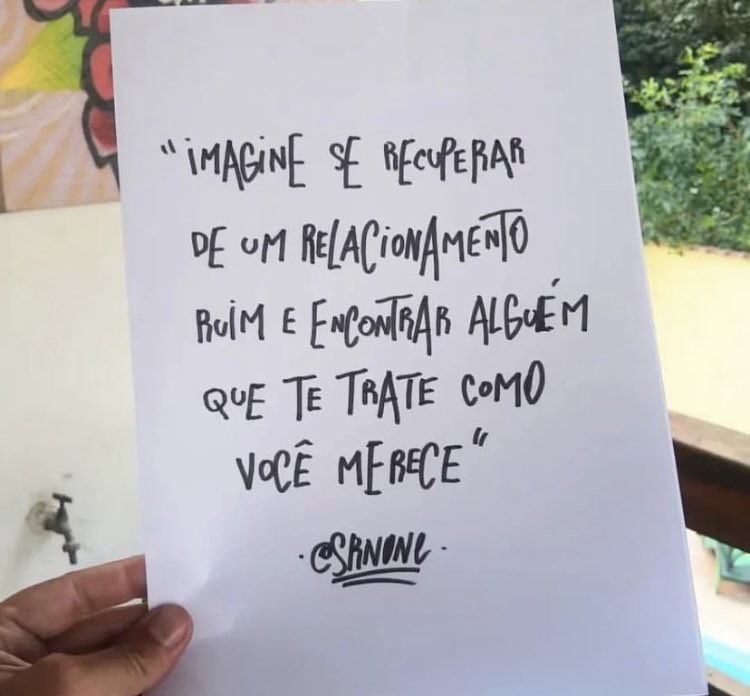 "IMAGINE SE RECUPERAR
DE UM RELACIONAMENTO
RUIM E ENCONTRAR ALGUÉM
QUE TE TRATE COMO
VOCÊ MERECE"
·@SRNONC·